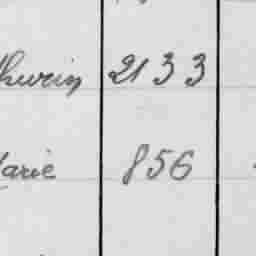 thurin 2133
Marie 856